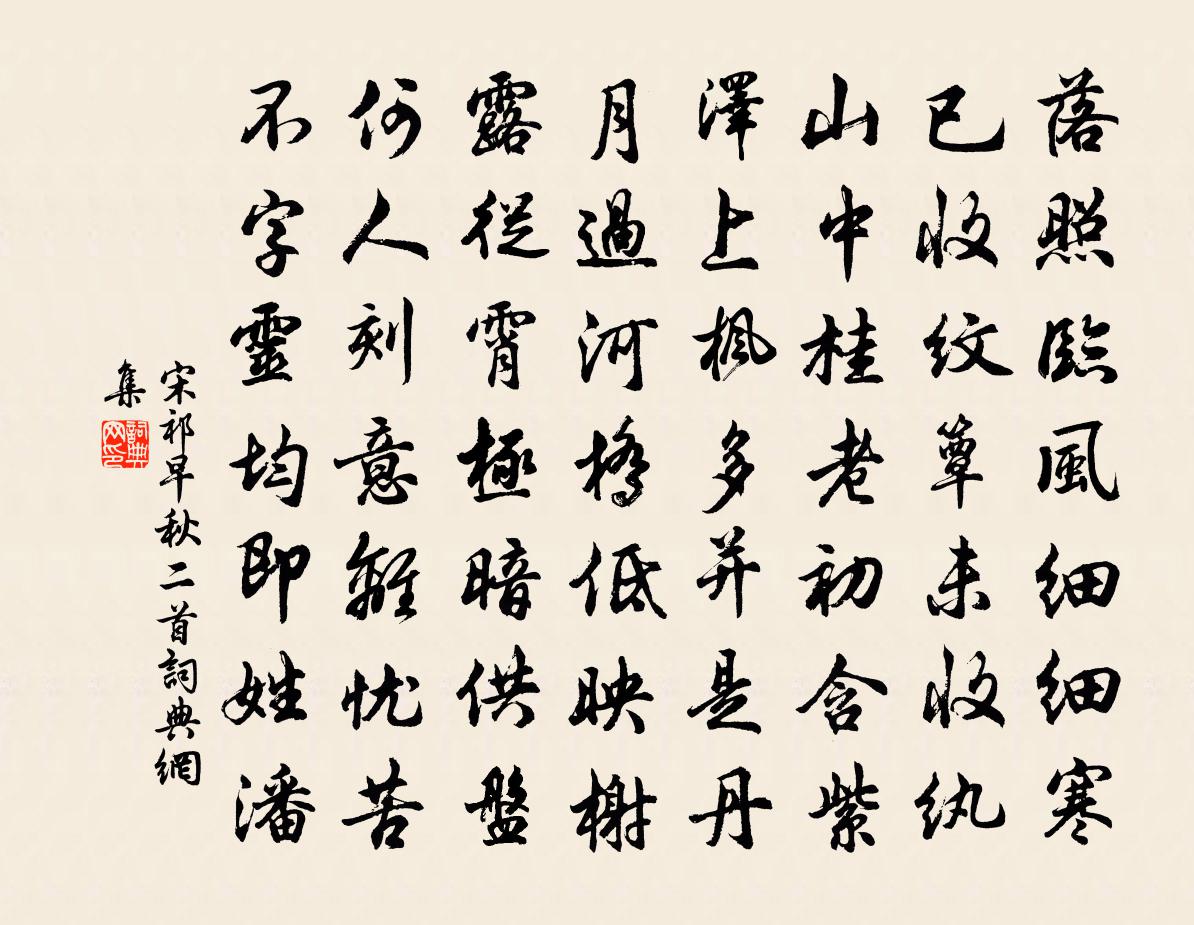 落照臨風細細寒
已收紋簟未收紈
山中桂老初含紫
澤上楓多并是丹
月過河橋低映榭
露從霄極暗供盤
何人刻意離忧苦
不字靈均即姓潘
宋祁早秋二首詞典網
集
詞典
网印